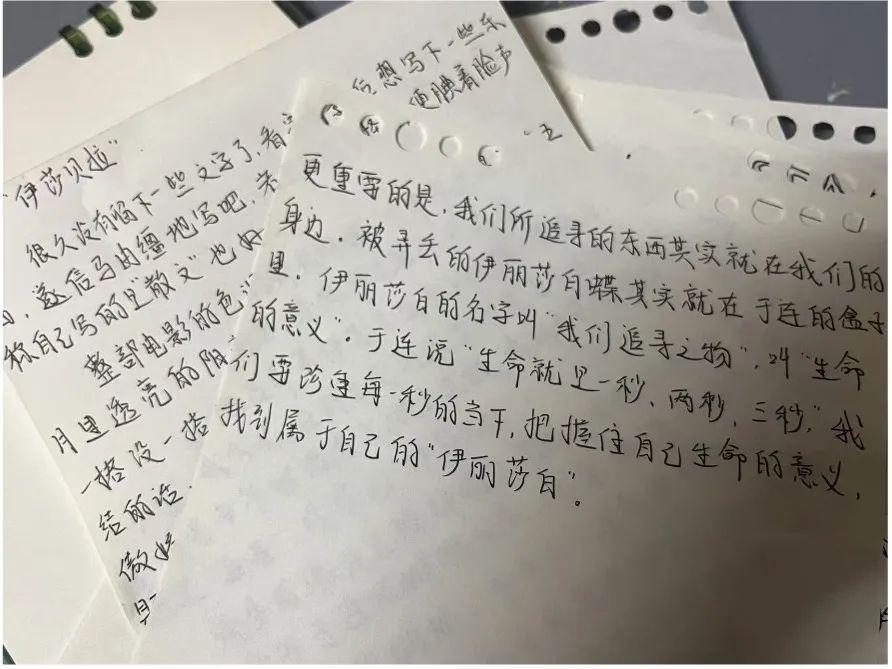 后想写下一些东
便腆着脸声
"伊莎贝拉"
很久没有留下一些文字了,看
,遂信马由缰地写吧,
称自己写的是"散文"也好
整部电影的色
月里透亮的阴
一搭没一搭
结的话.
傲
更重要的是,我们所追寻的东西其实就在我们的
身边.被弄丢的伊丽莎白蝶其实就在于连的盒子
里.伊丽莎白的名字叫"我们追寻之物",叫"生命
的意义".于连说"生命就是一秒、两秒、三秒,"我
们要珍重每一秒的当下,把握住自己生命的意义,
找到属于自己的"伊丽莎白"。